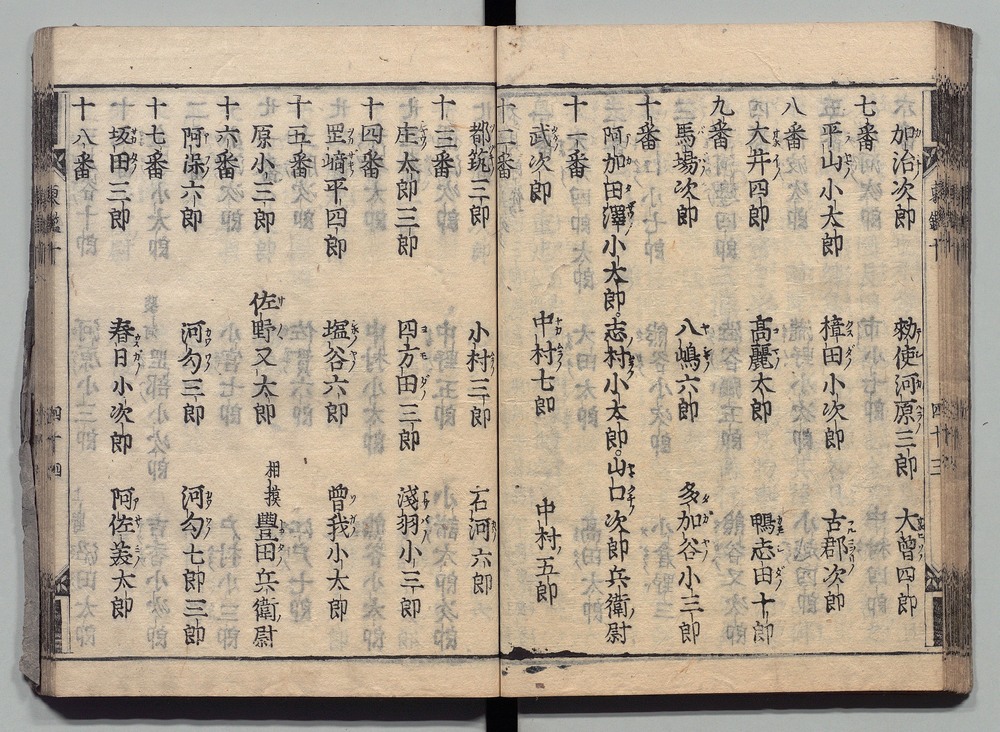 七番
加治次郎　勅使河原三郎　大曽四郎
平山小太郎　樟田小次郎　古郡次郎
八番
大井四郎　高麗太郎　鴨志田十郎
九番
馬場次郎　八嶋六郎　多加谷小三郎
十番
阿加田澤小太郎。志村小太郎。山口次郎兵衛尉
十一番
武次郎　中村七郎　中村五郎
十二番
都筑三郎　小村三郎　石河六郎
十三番
庄太郎三郎　四方田三郎　淺羽小三郎
十四番
罡﨑平四郎　塩谷六郎　曾我小太郎
十五番
原小三郎　佐野又太郎　相摸豊田兵衛尉
十六番
阿保六郎　河匂三郎　河匂七郎三郎
十七番
坂田三郎　春日小次郎　阿佐羙太郎
十八番
東鑑十　四十三
東鑑十　四十四